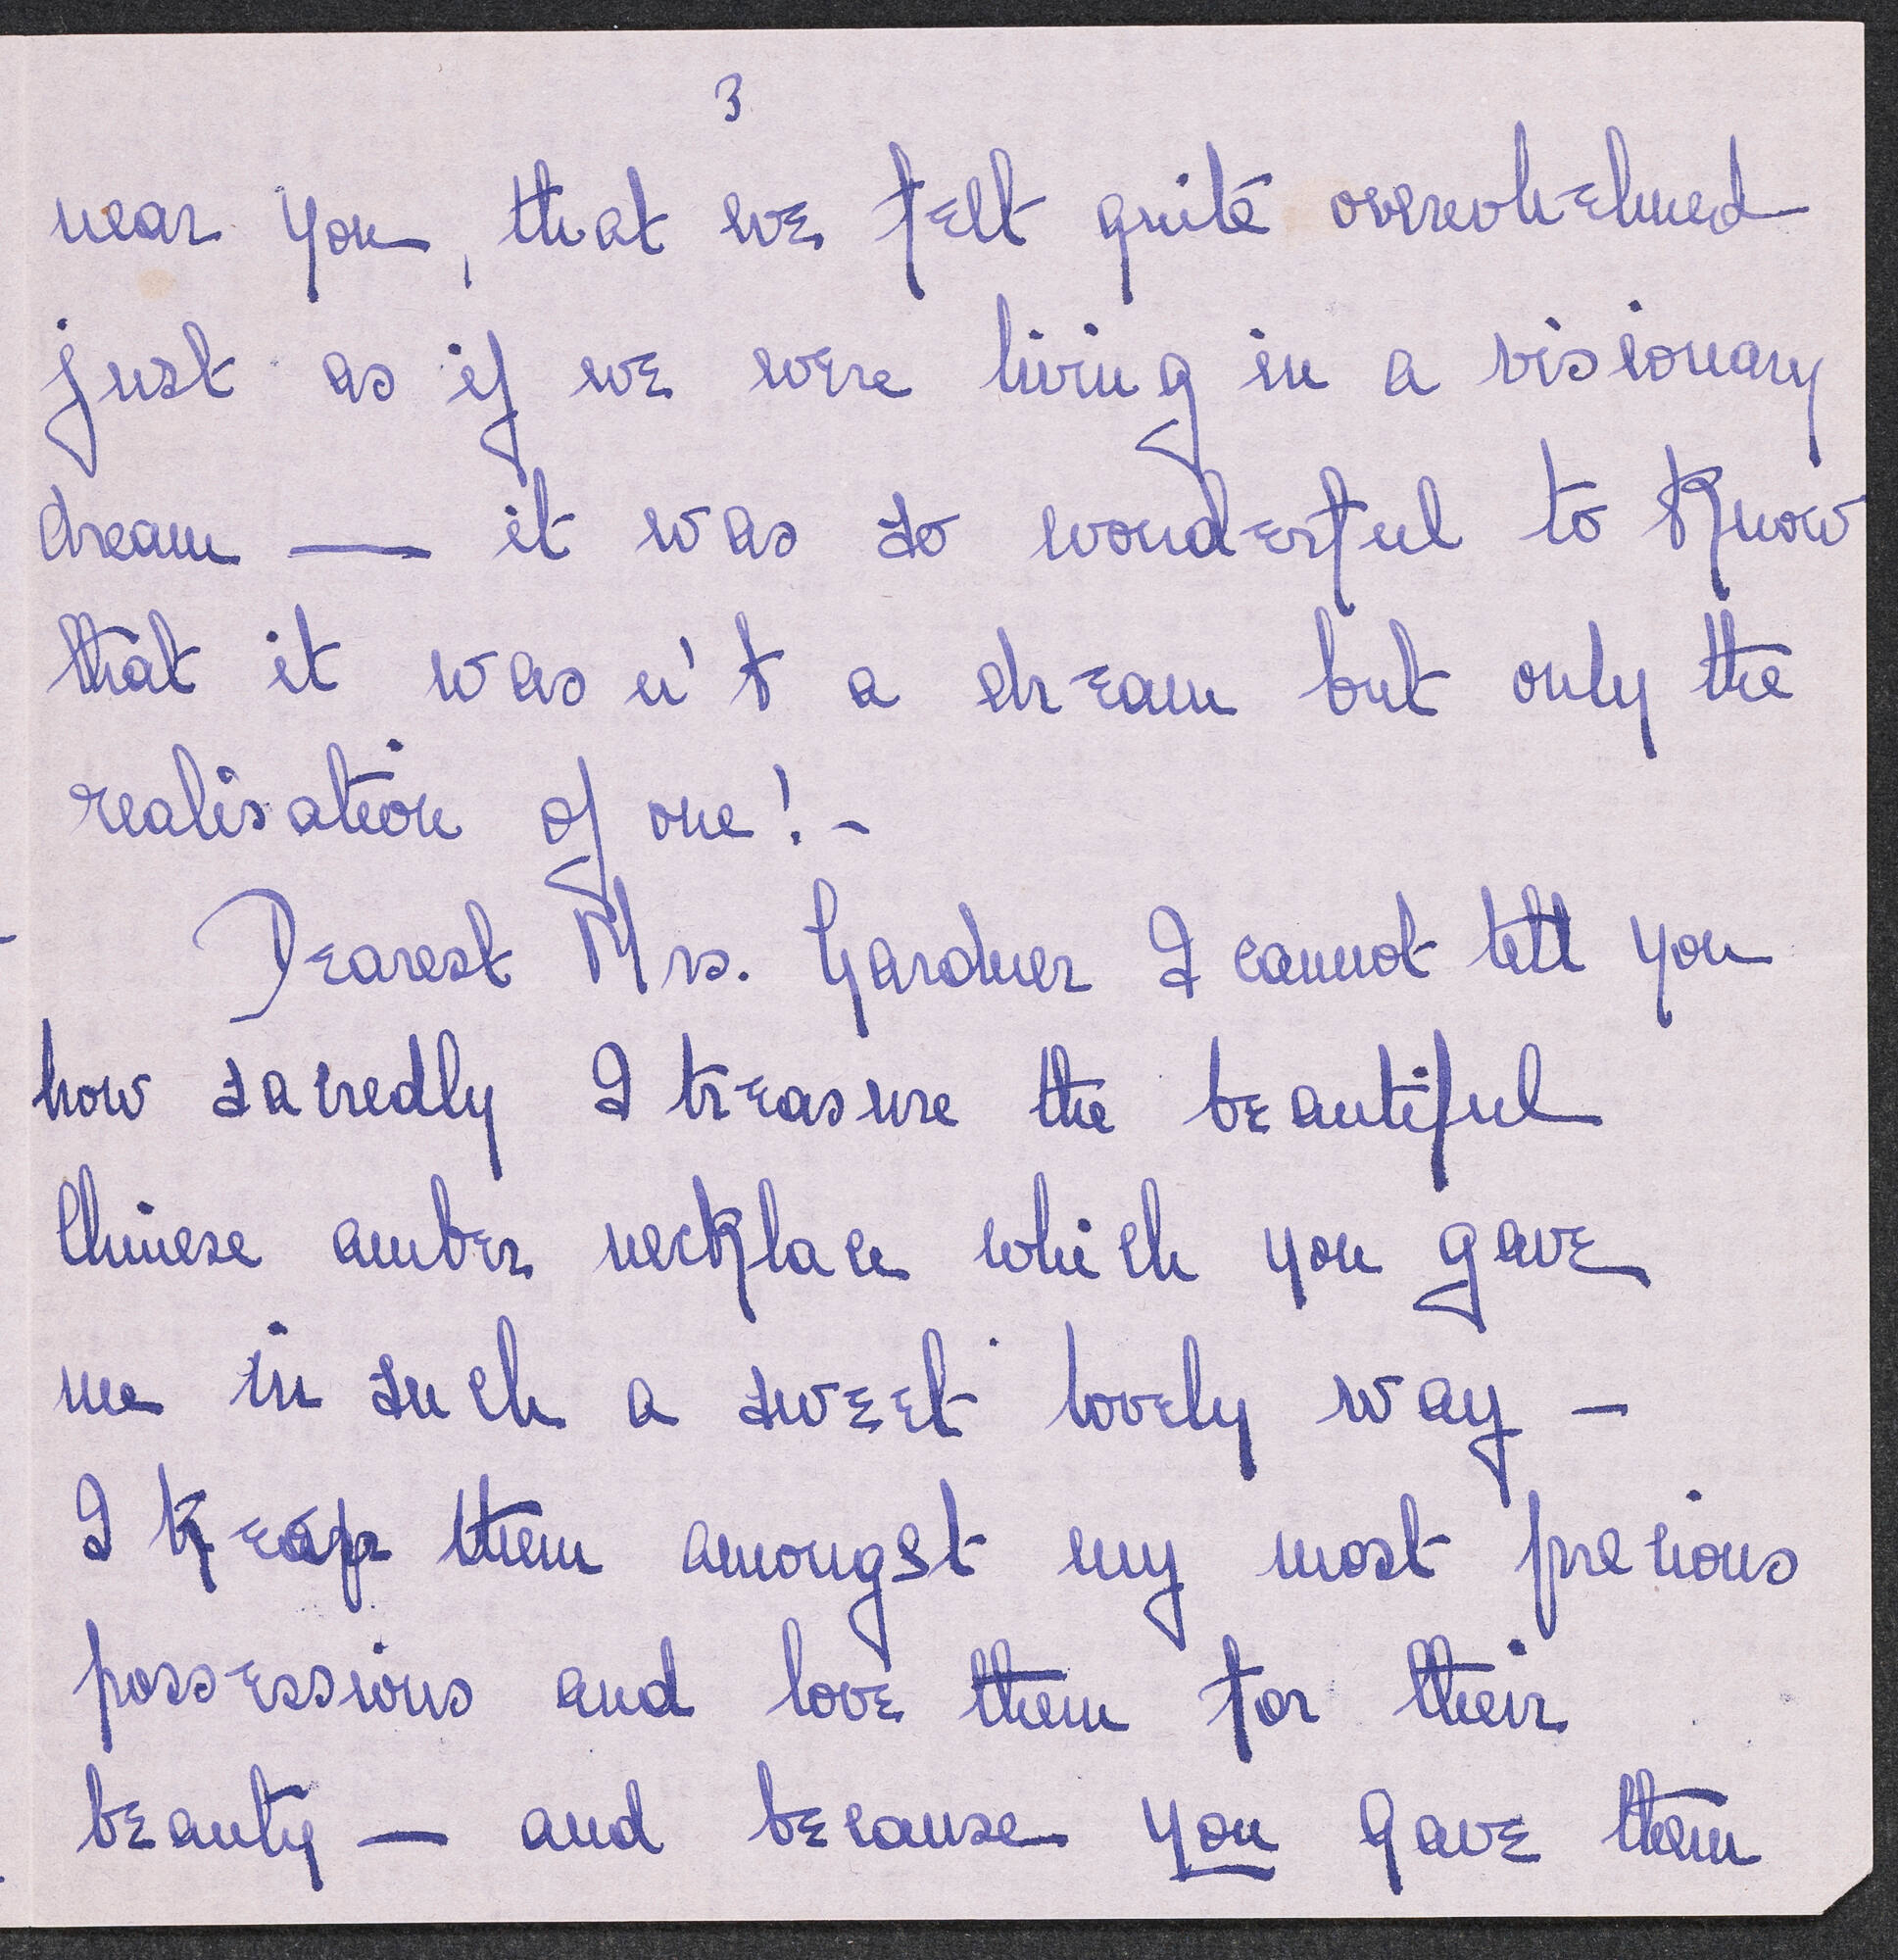 3
near you, that we felt quite overwhelmed
just as if we were living in a visionary
dream — it was so wonderful to know
that it wasn't a dream but only the
realisation of one! -
Dearest Mrs. Gardner I cannot tell you
how sacredly I treasure the beautiful
Chinese amber necklace which you gave
me in such a sweet lovely way -
I keap them amongst my most precious
possessions and love them for their
beauty — and because you gave them